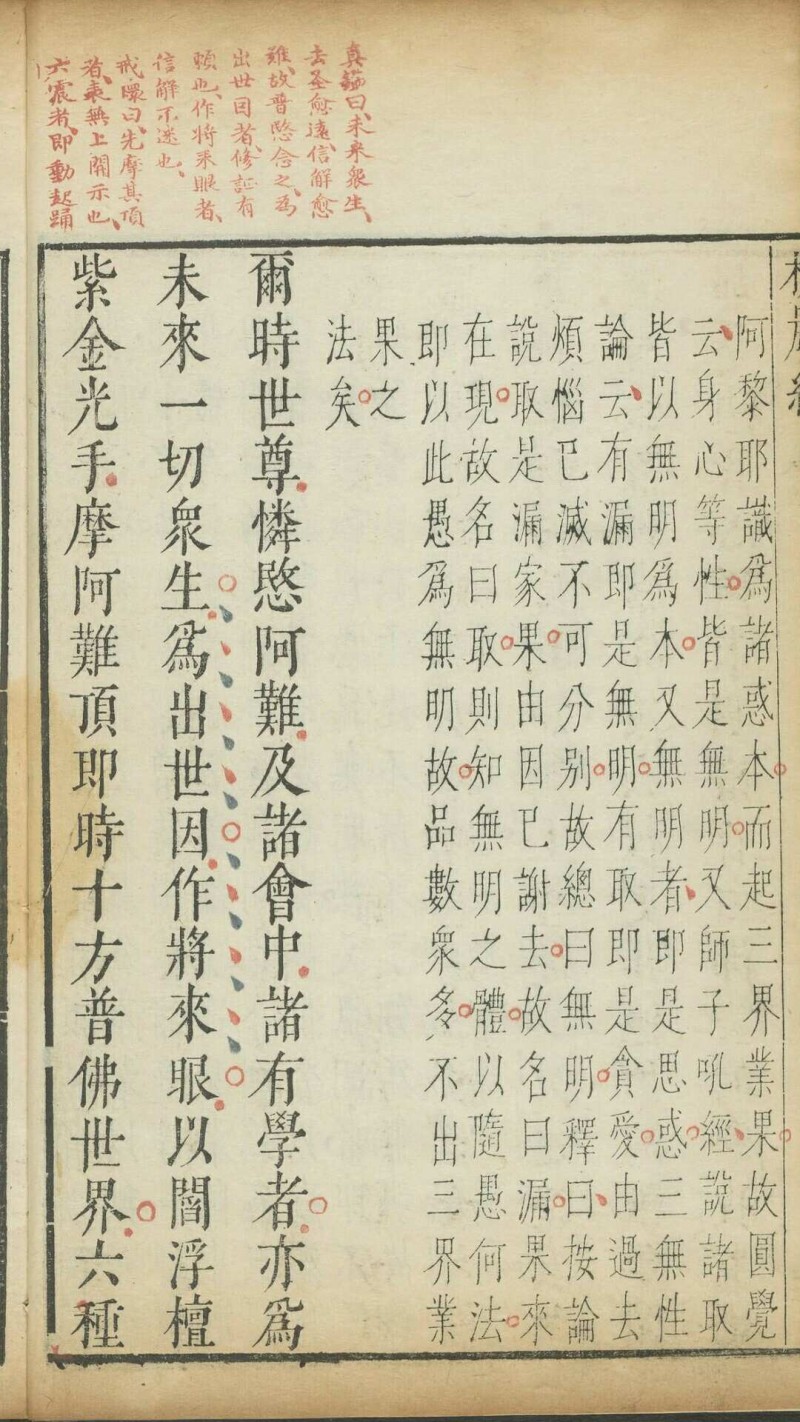 真鑑曰、未來衆生、
去圣愈遠、信解愈
難、故普愍念之、爲
出世因者、修証有
賴也、作將來眼者、
信解不迷也、
戒環曰、先摩其頂
者、表無上開示也、
六震者、即動起踊
阿黎耶識爲諸惑本而起三界業果故圓覺
云身心等性皆是無明又師子吼經說諸取
皆以無明爲本又無明者即是思惑三無性
論云有漏即是無明有取即是貪愛由過去
煩惱已滅不可分別故總曰無明釋曰按論
說取是漏家果由因已謝去故名曰漏果來
在現故名曰取則知無明之體以隨愚何法
即以此愚爲無明故品數衆多不出三界業
果之
法矣
爾時世尊憐愍阿難及諸會中諸有學者亦爲
未來一切衆生爲出世因作將來眼以閻浮檀
紫金光手摩阿難頂即時十方普佛世界六種